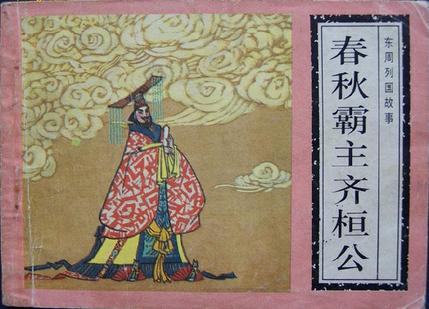 东周列国故事
春秋霸主齐桓公